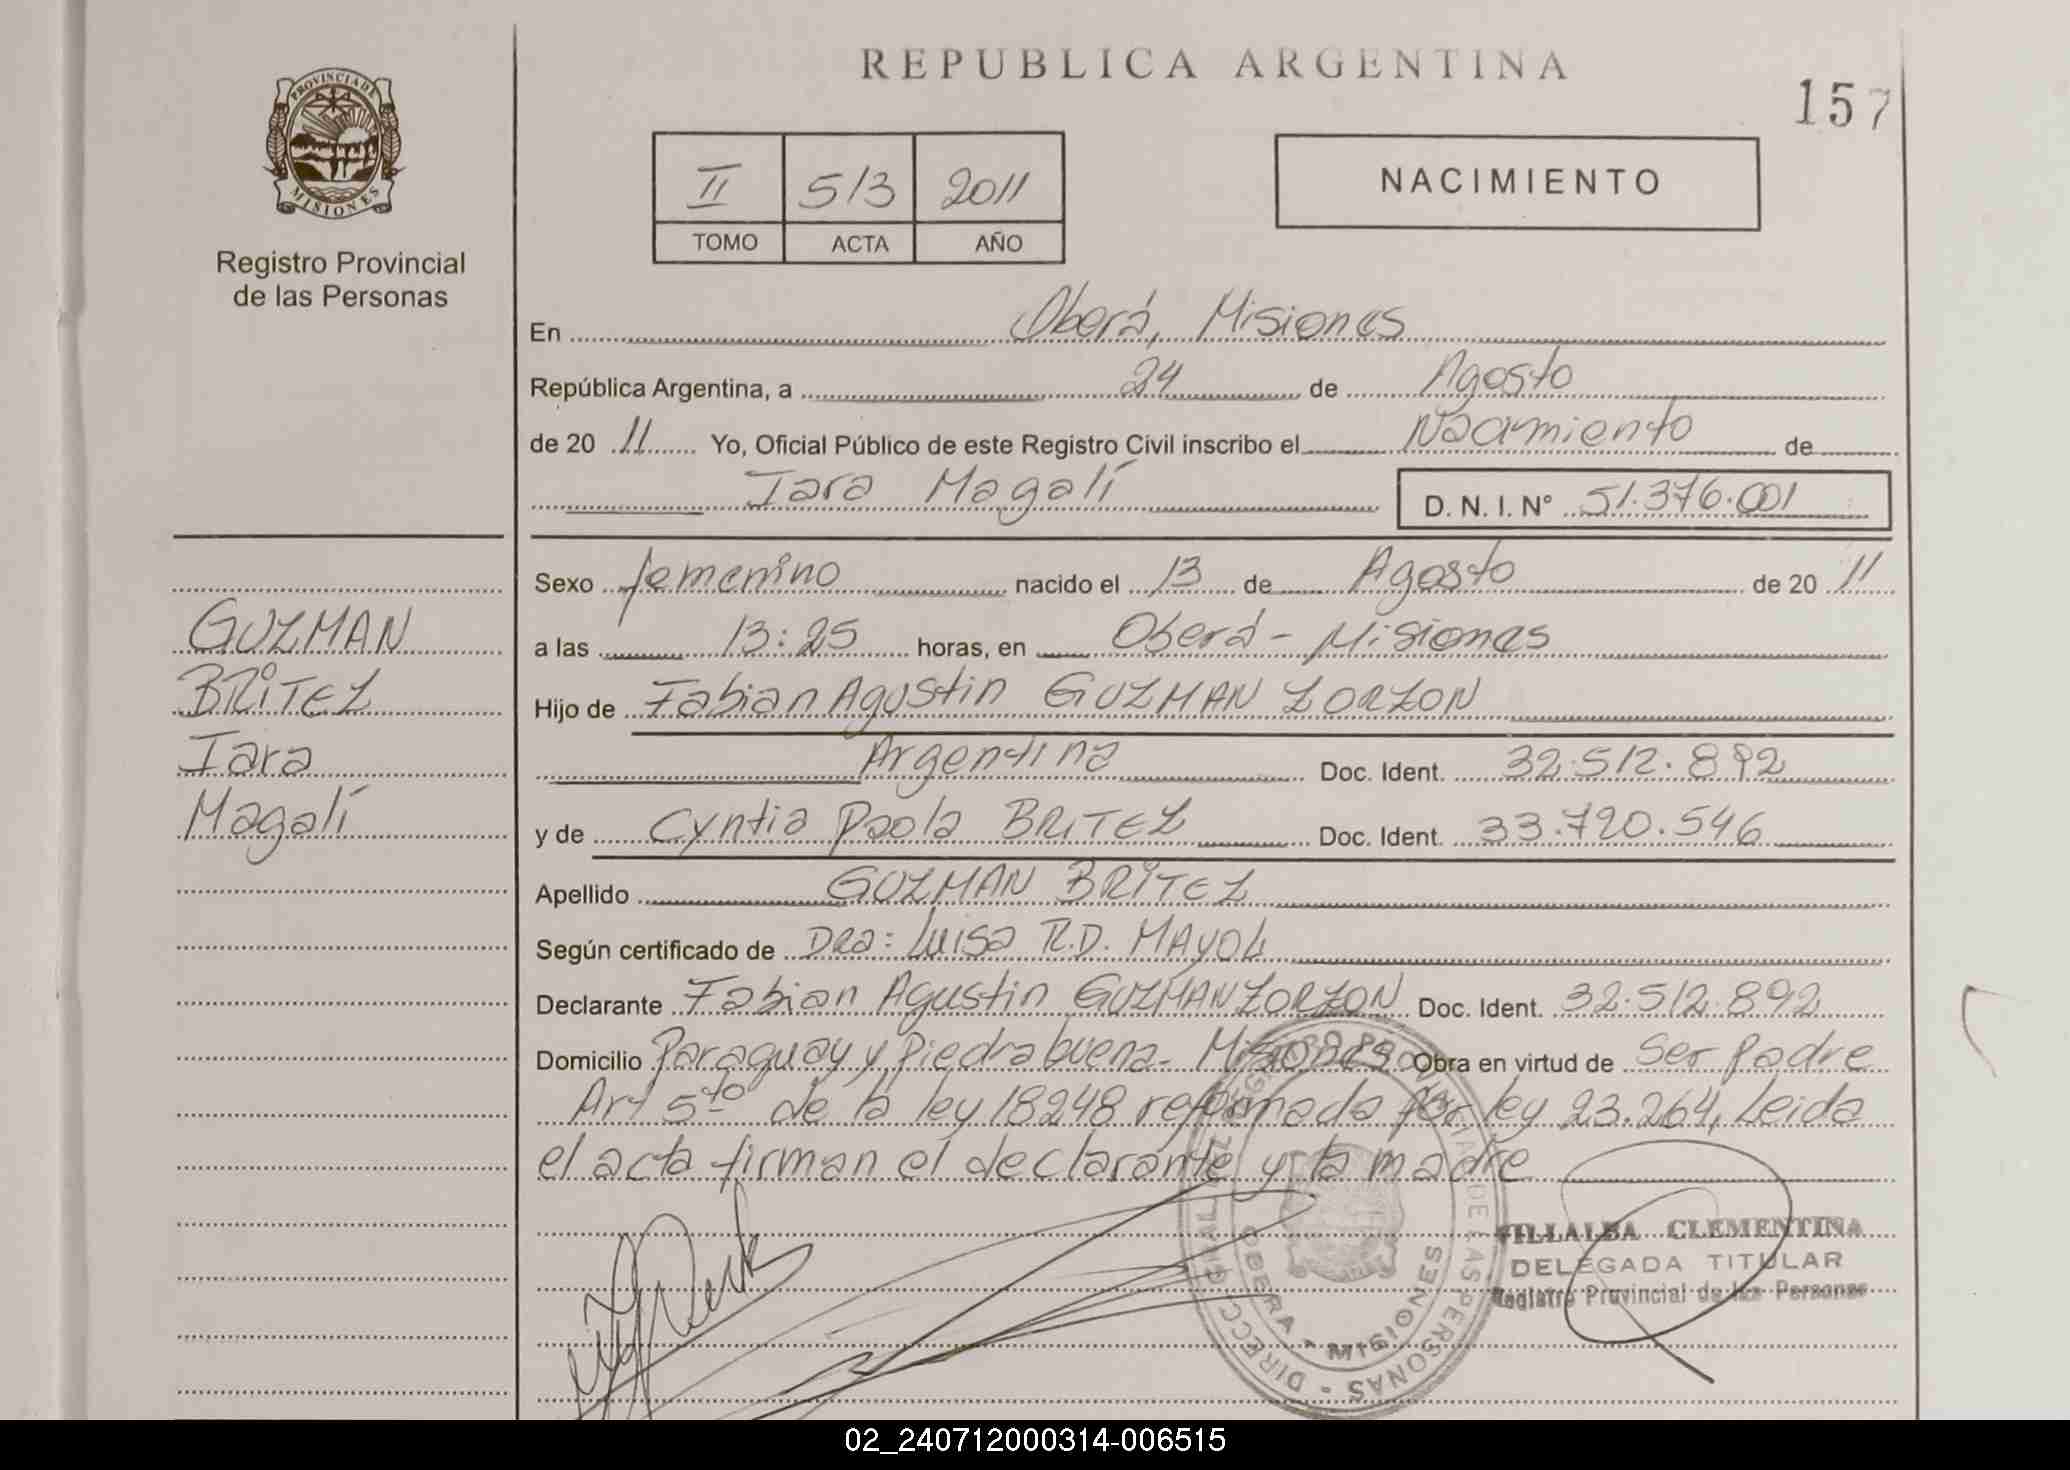 REPUBLICA ARGENTINA
157
PROVINCIA DE
MISIONES
Registro Provincial
de las Personas
II 513 2011
TOMO ACTA AÑO
NACIMIENTO
En Oberá, Misiones
República Argentina, a 24 de Agosto
de 20 11 Yo, Oficial Público de este Registro Civil inscribo el Nacimiento de
Iara Magalí D. N. I. N° 51.376.001
GUZMAN
BRITEZ
Iara
Magalí
Sexo femenino nacido el 13 de Agosto de 20 11
a las 13:25 horas, en Oberá - Misiones
Hijo de Fabian Agustin GUZMAN ZORZON
Argentina Doc. Ident. 32.512.892
y de Cyntia Paola BRITEZ Doc. Ident. 33.720.546
Apellido GUZMAN BRITEZ
Según certificado de Dra: Luisa R.D. MAYOL
Declarante Fabian Agustin GUZMAN ZORZON Doc. Ident. 32.512.892
Domicilio Paraguay y Piedrabuena - Misiones Obra en virtud de Ser padre
Art 5to de la ley 18248 reformada por ley 23.264, Leida
el acta firman el declarante y la madre
VILLALBA CLEMENTINA
DELEGADA TITULAR
Registro Provincial de las Personas
OBERA - MISIONES
02_240712000314-006515